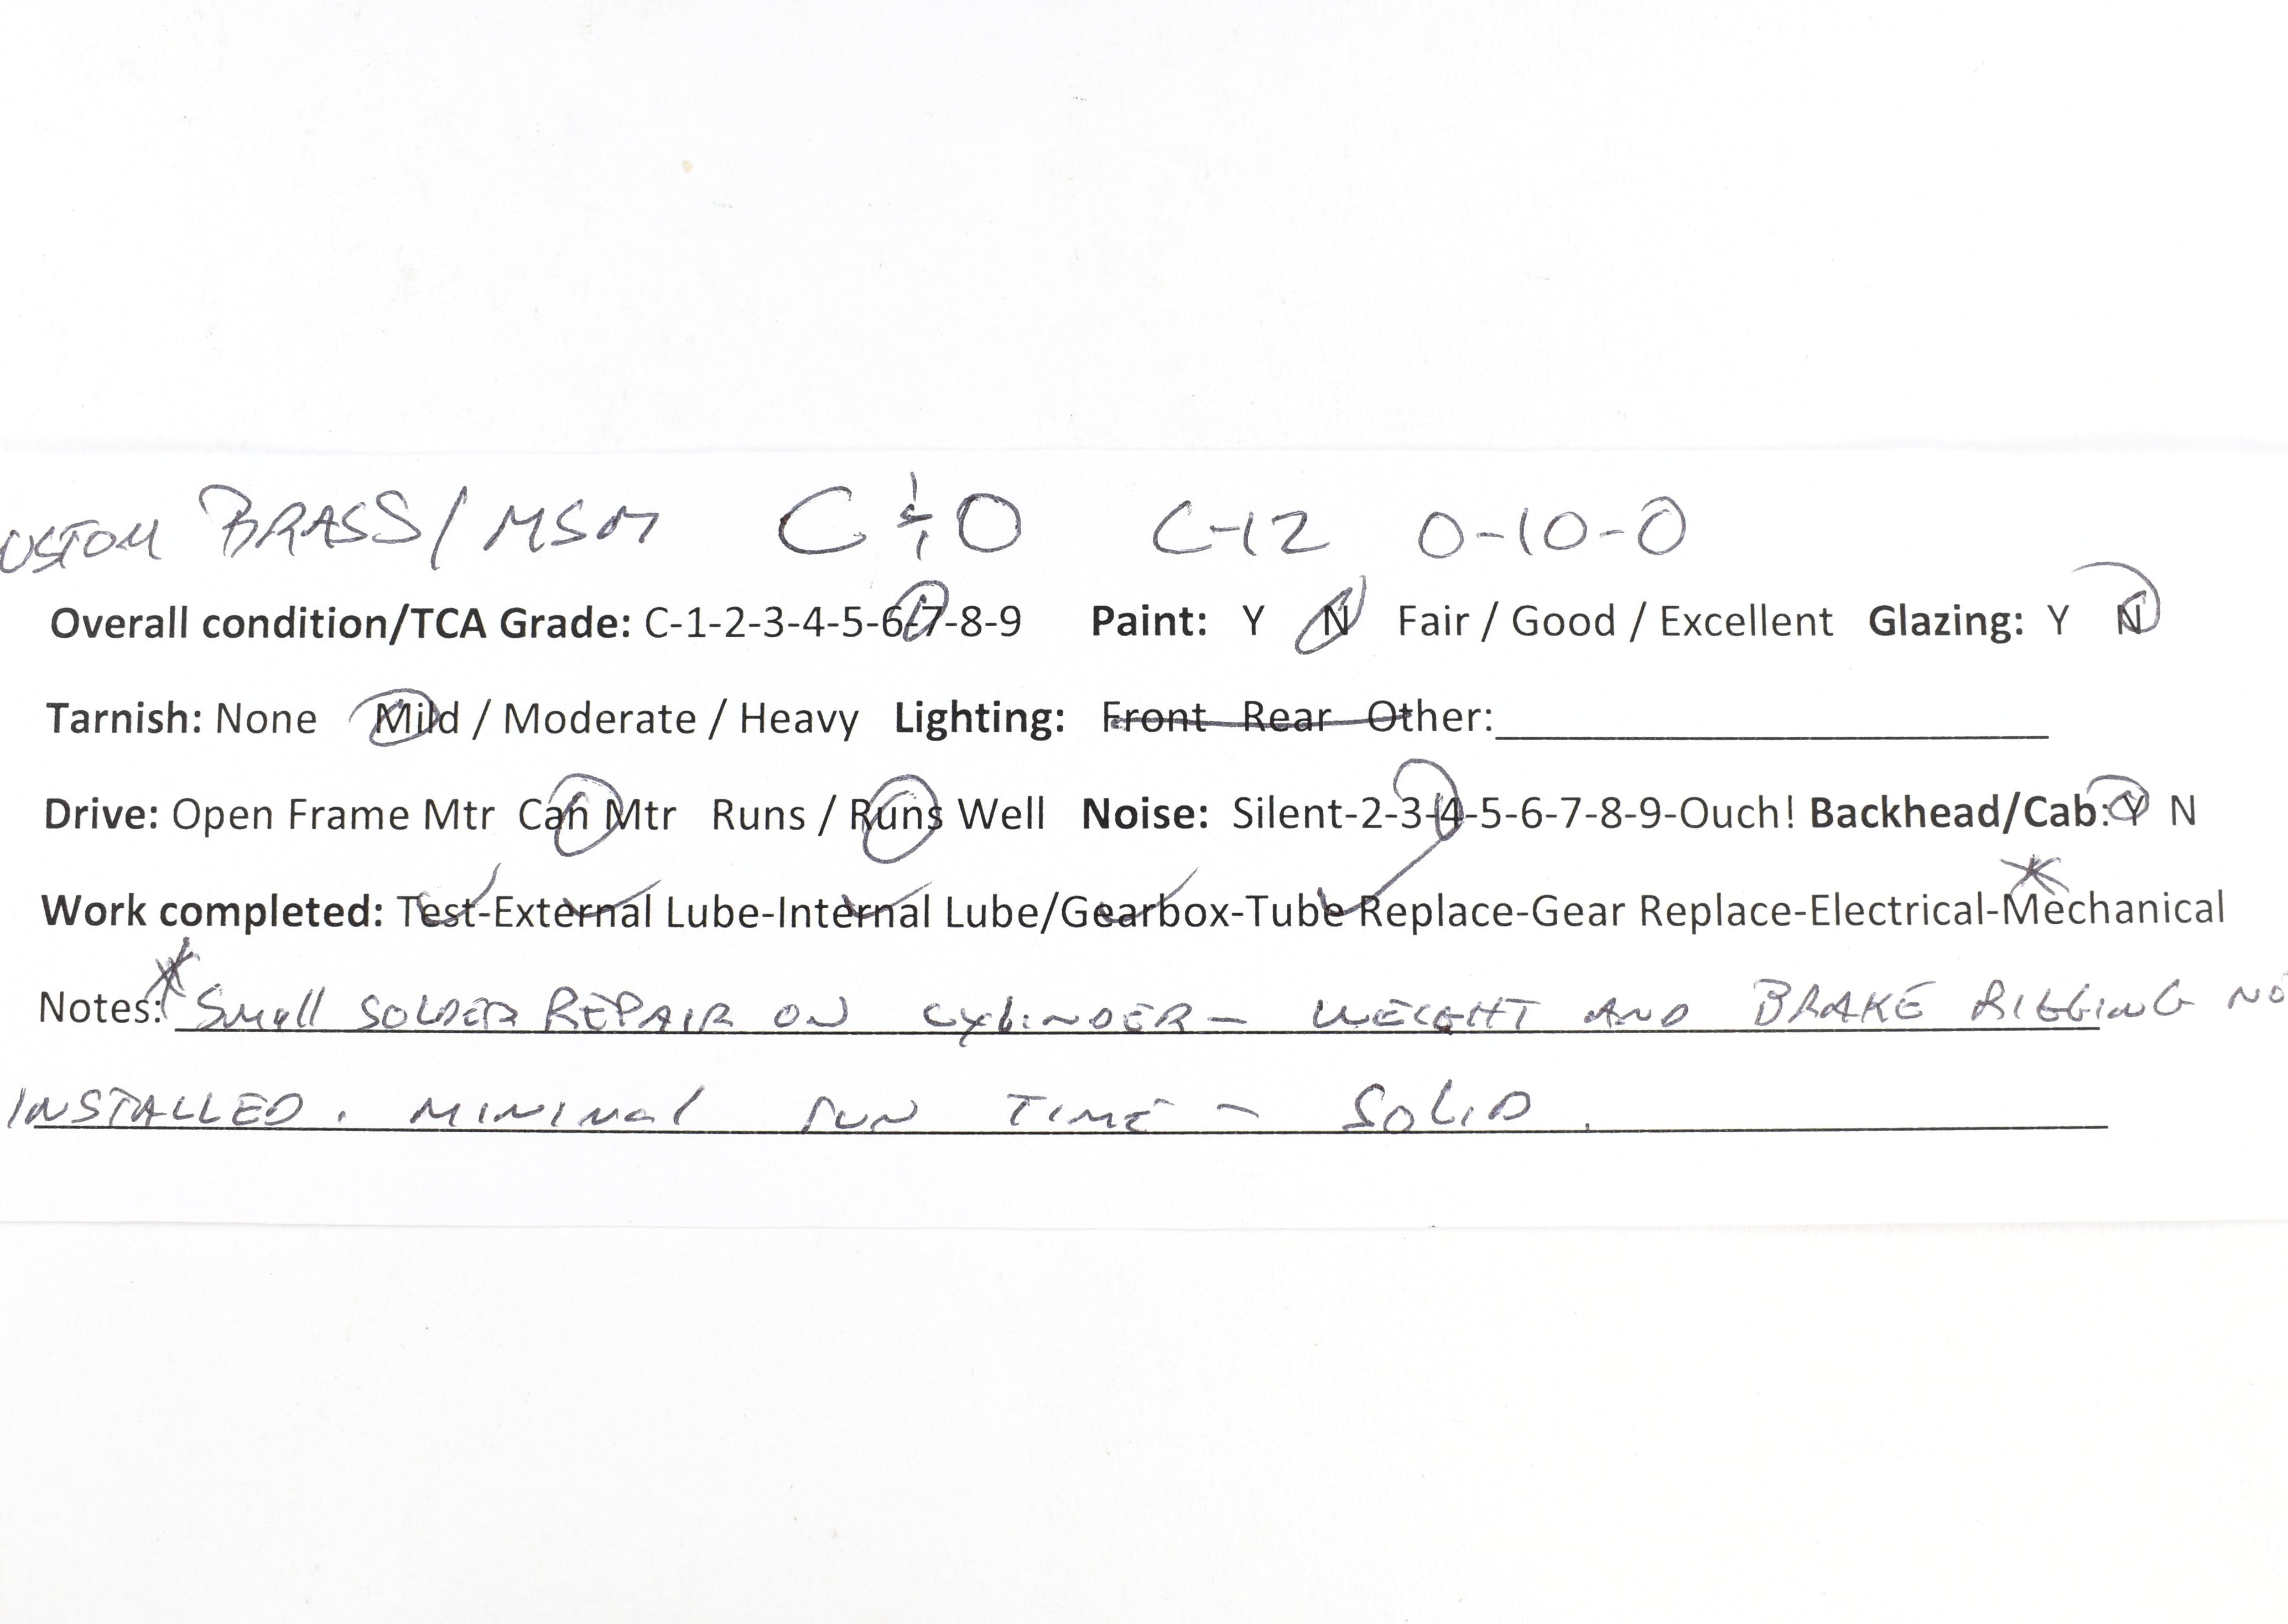 USTOM BRASS/MSM C&O C-12 0-10-0
Overall condition/TCA Grade: C-1-2-3-4-5-6-7-8-9 Paint: Y N Fair / Good / Excellent Glazing: Y N
Tarnish: None Mild / Moderate / Heavy Lighting: Front Rear Other:
Drive: Open Frame Mtr Can Mtr Runs / Runs Well Noise: Silent-2-3-4-5-6-7-8-9-Ouch! Backhead/Cab: Y N
Work completed: Test-External Lube-Internal Lube/Gearbox-Tube Replace-Gear Replace-Electrical-Mechanical
Notes: * Small SOLDER REPAIR ON CYLINDER - WEIGHT AND BRAKE RIGGING NO
INSTALLED. MINIMAL RUN TIME - SOLID.